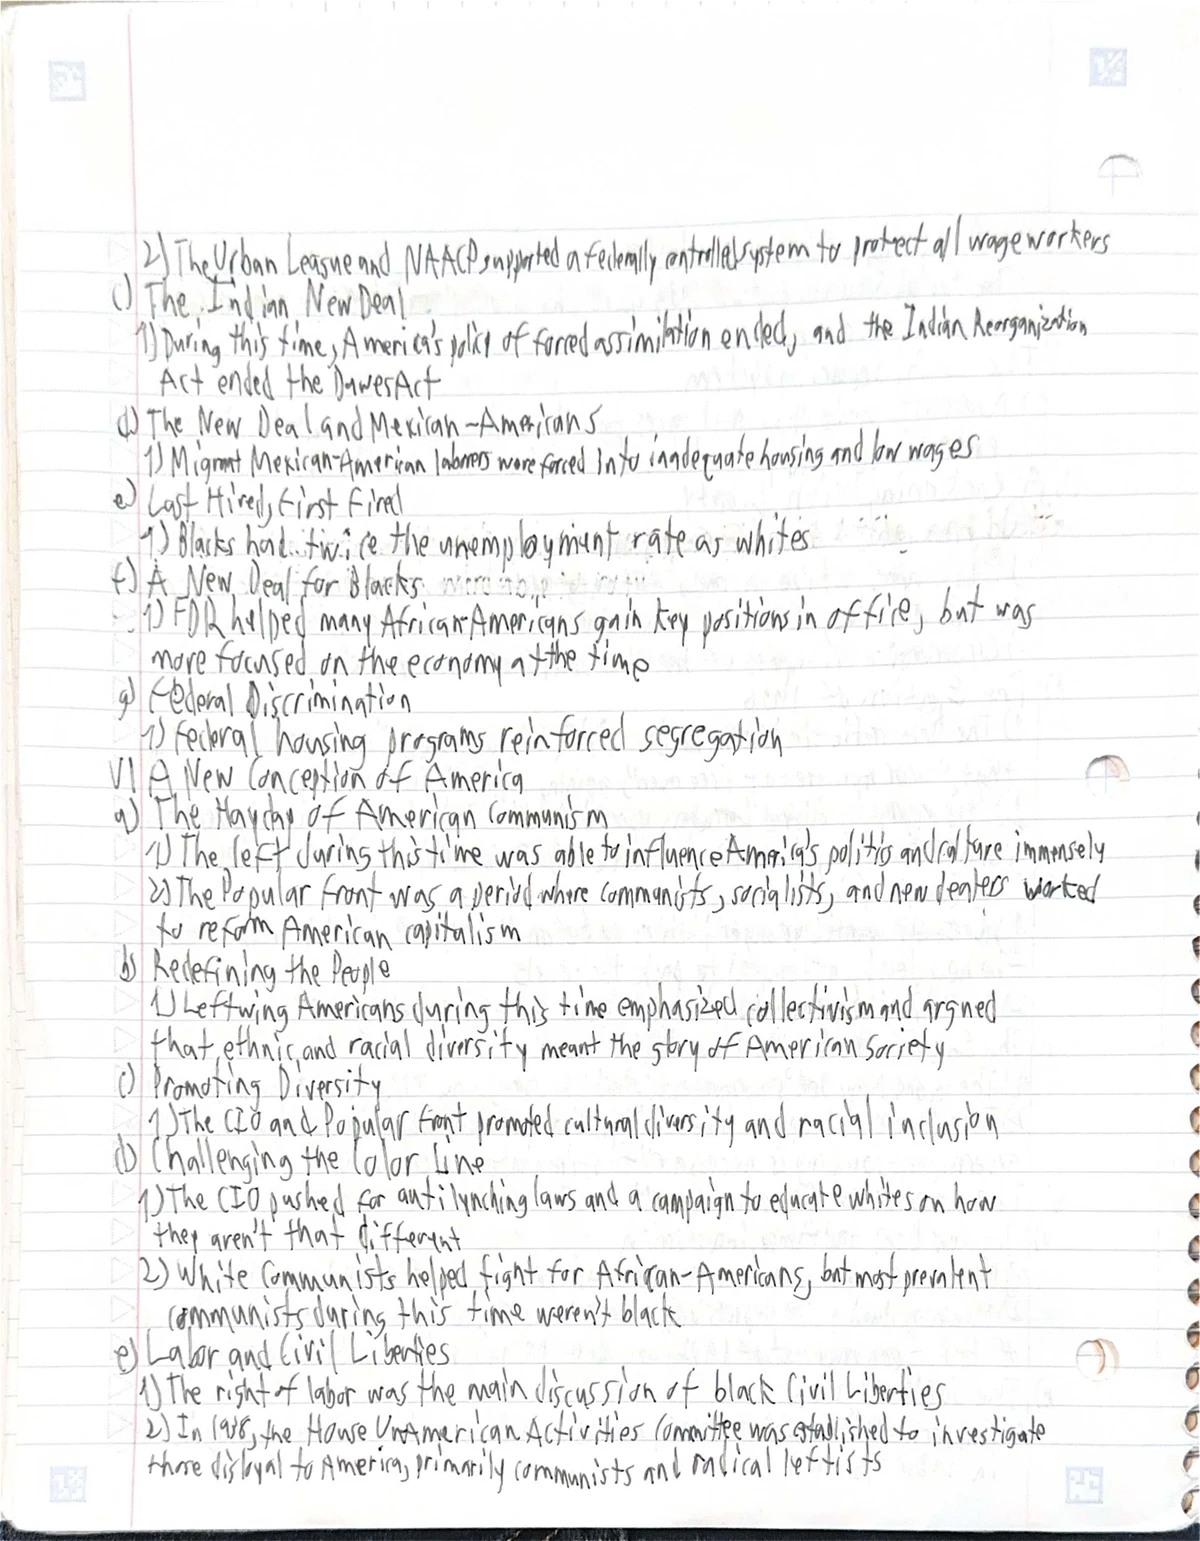 2) The Urban League and NAACP supported a federally controlled system to protect all wage workers
c) The Indian New Deal
1) During this time, America's policy of forced assimilation ended, and the Indian Reorganization
Act ended the Dawes Act
d) The New Deal and Mexican-Americans
1) Migrant Mexican-American laborers were forced into inadequate housing and low wages
e) Last Hired, First Fired
1) Blacks had twice the unemployment rate as whites
f) A New Deal for Blacks
1) FDR helped many African-Americans gain key positions in office, but was
more focused on the economy at the time
g) Federal Discrimination
1) Federal housing programs reinforced segregation
VI A New Conception of America
a) The Hayday of American Communism
1) The left during this time was able to influence America's politics and culture immensely
2) The Popular Front was a period where communists, socialists, and new dealers worked
to reform American capitalism
b) Redefining the People
1) Leftwing Americans during this time emphasized collectivism and argued
that ethnic and racial diversity meant the glory of American Society
c) Promoting Diversity
1) The CIO and Popular Front promoted cultural diversity and racial inclusion
d) Challenging the Color Line
1) The CIO pushed for anti lynching laws and a campaign to educate whites on how
they aren't that different
2) White Communists helped fight for African-Americans, but most prevalent
communists during this time weren't black
e) Labor and Civil Liberties
1) The right of labor was the main discussion of black Civil Liberties
2) In 1938, the House UnAmerican Activities Committee was established to investigate
those disloyal to America, primarily communists and radical leftists